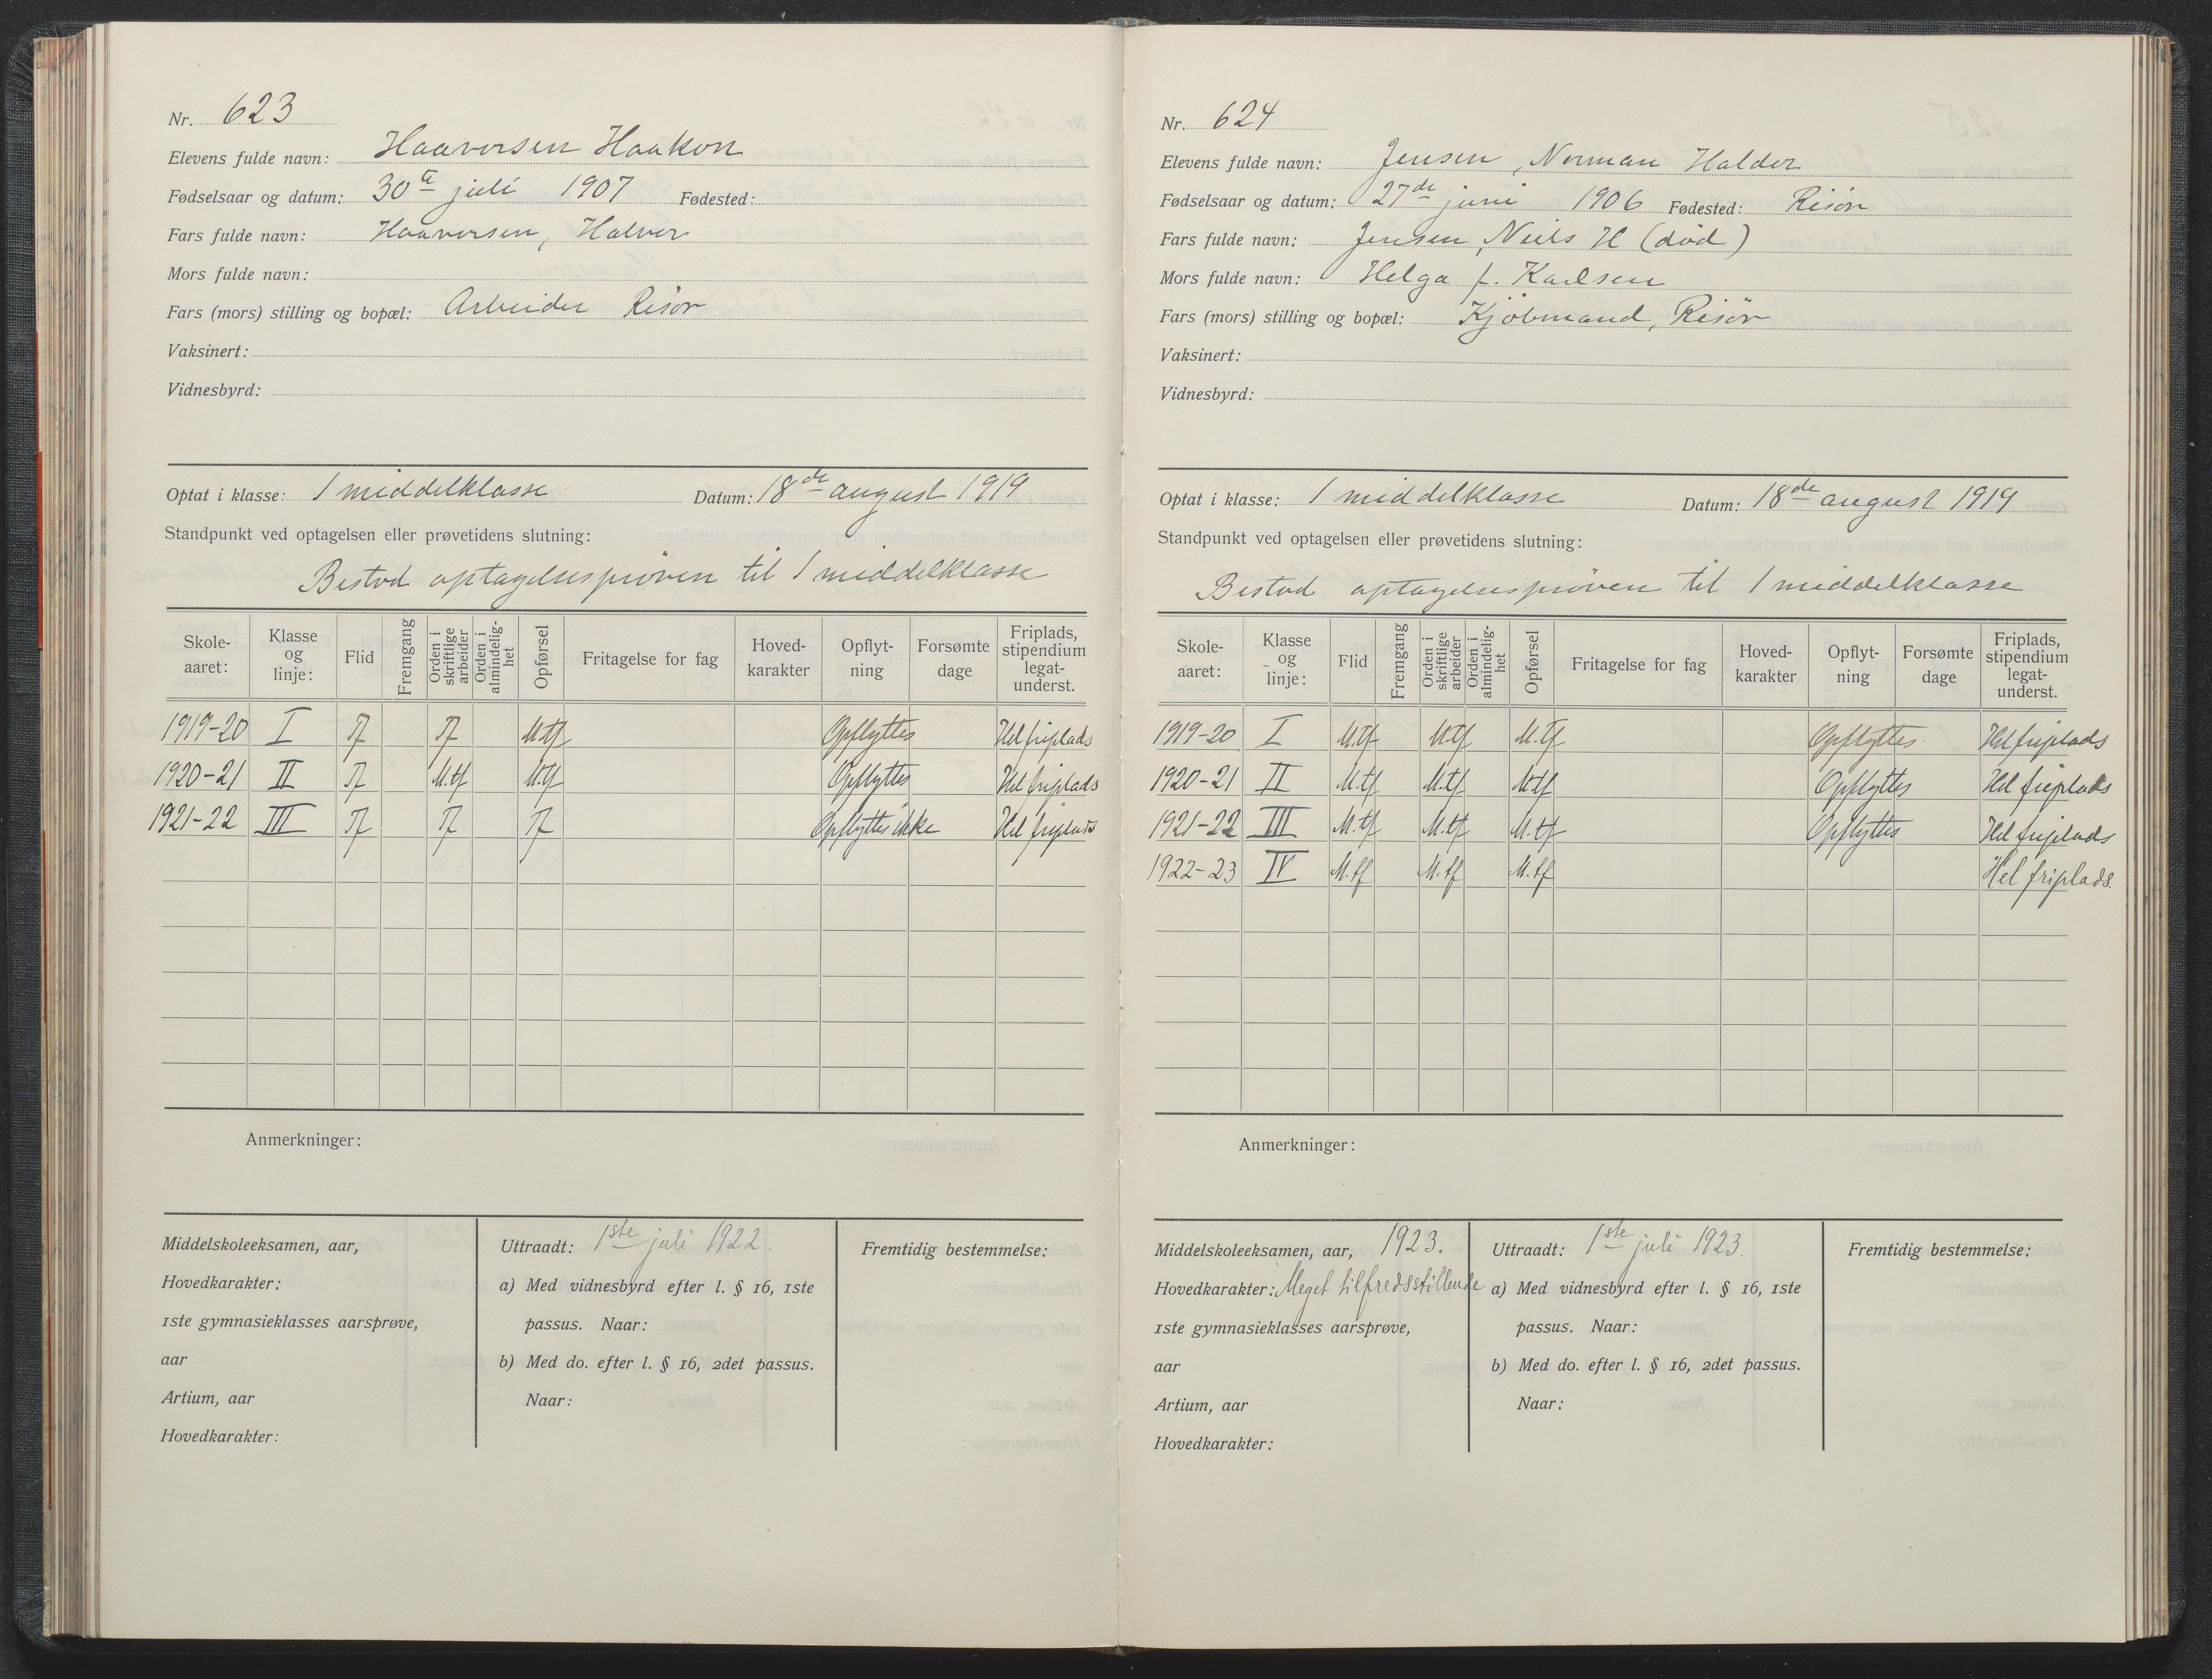 Nr. 623
Elevens fulde navn: Haaversen Haakon
Fødselsaar og datum: 30te juli 1907 Fødested:
Fars fulde navn: Haaversen, Halvor
Mors fulde navn:
Fars (mors) stilling og bopæl: Arbeider Risör
Vaksinert:
Vidnesbyrd:
Optat i klasse: I middelklasse Datum: 18de august 1919
Standpunkt ved optagelsen eller prøvetidens slutning:
Bestod optagelsespröven til I middelklasse
Skole-aaret: Klasse og linje: Flid Fremgang Orden i skriftlige arbeider Orden i almindelig-het Opførsel Fritagelse for fag Hoved-karakter Opflyt-ning Forsømte dage Friplads, stipendium legat-underst.
1919-20 I Tf Tf M.tf Opflyttes Hel friplads
1920-21 II Tf M.tf M.tf Opflyttes Hel friplads
1921-22 III Tf Tf Tf Opflyttes ikke Hel friplads
Anmerkninger:
Middelskoleeksamen, aar,
Hovedkarakter:
1ste gymnasieklasses aarsprøve,
aar
Artium, aar
Hovedkarakter:
Uttraadt: 1ste juli 1922.
a) Med vidnesbyrd efter l. § 16, 1ste
passus. Naar:
b) Med do. efter l. § 16, 2det passus.
Naar:
Fremtidig bestemmelse:
Nr. 624
Elevens fulde navn: Jensen, Norman Haldor
Fødselsaar og datum: 27de juni 1906 Fødested: Risör
Fars fulde navn: Jensen, Niels H (död)
Mors fulde navn: Helga f. Karlsen
Fars (mors) stilling og bopæl: Kjöbmand, Risör
Vaksinert:
Vidnesbyrd:
Optat i klasse: I middelklasse Datum: 18de august 1919
Standpunkt ved optagelsen eller prøvetidens slutning:
Bestod optagelsespröven til I middelklasse
Skole-aaret: Klasse og linje: Flid Fremgang Orden i skriftlige arbeider Orden i almindelig-het Opførsel Fritagelse for fag Hoved-karakter Opflyt-ning Forsømte dage Friplads, stipendium legat-underst.
1919-20 I M.tf M.tf M.tf Opflyttes. Hel friplads
1920-21 II M.tf M.tf. M.tf Opflyttes Hel friplads
1921-22 III M.tf M.tf M.tf Opflyttes Hel friplads
1922-23 IV M.tf M.tf M.tf Hel friplads.
Anmerkninger:
Middelskoleeksamen, aar, 1923.
Hovedkarakter: Meget tilfredsstillende
1ste gymnasieklasses aarsprøve,
aar
Artium, aar
Hovedkarakter:
Uttraadt: 1ste juli 1923.
a) Med vidnesbyrd efter l. § 16, 1ste
passus. Naar:
b) Med do. efter l. § 16, 2det passus.
Naar:
Fremtidig bestemmelse: